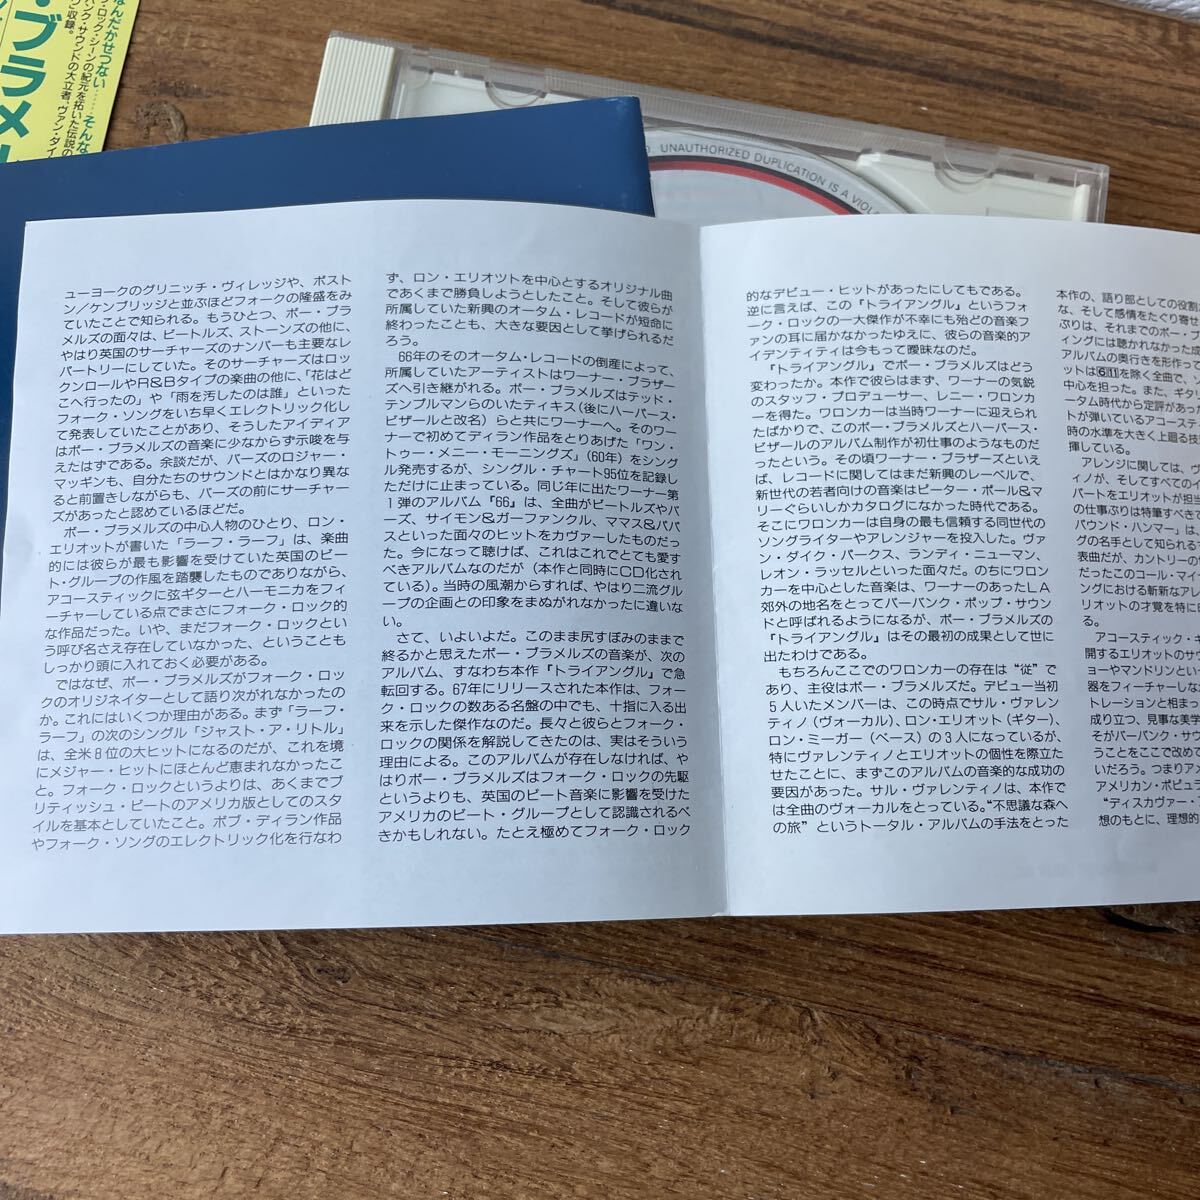 なんだかせつない……そんな
・ブラメル
ロック・シーンの紀元を拓いた伝説の
バンク・サウンドの大立者、ヴァン・ダイ
D. UNAUTHORIZED DUPLICATION IS A VIOLA
ューヨークのグリニッチ・ヴィレッジや、ボスト
ン／ケンブリッジと並ぶほどフォークの隆盛をみ
ていたことで知られる。もうひとつ、ボー・ブラ
メルズの面々は、ビートルズ、ストーンズの他に、
やはり英国のサーチャーズのナンバーも主要なレ
パートリーにしていた。そのサーチャーズはロッ
クンロールやR&Bタイプの楽曲の他に、「花はど
こへ行ったの」や「雨を汚したのは誰」といった
フォーク・ソングをいち早くエレクトリック化し
て発表していたことがあり、そうしたアイディア
はボー・ブラメルズの音楽に少なからず示唆を与
えたはずである。余談だが、バーズのロジャー・
マッギンも、自分たちのサウンドとはかなり異な
ると前置きしながらも、バーズの前にサーチャー
ズがあったと認めているほどだ。
ボー・ブラメルズの中心人物のひとり、ロン・
エリオットが書いた「ラーフ・ラーフ」は、楽曲
的には彼らが最も影響を受けていた英国のビー
ト・グループの作風を踏襲したものでありながら、
アコースティックに弦ギターとハーモニカをフィ
ーチャーしている点でまさにフォーク・ロック的
な作品だった。いや、まだフォーク・ロックとい
う呼び名さえ存在していなかった、ということも
しっかり頭に入れておく必要がある。
ではなぜ、ボー・ブラメルズがフォーク・ロッ
クのオリジネイターとして語り次がれなかったの
か。これにはいくつか理由がある。まず「ラーフ・
ラーフ」の次のシングル「ジャスト・ア・リトル」
は、全米8位の大ヒットになるのだが、これを境
にメジャー・ヒットにほとんど恵まれなかったこ
と。フォーク・ロックというよりは、あくまでブ
リティッシュ・ビートのアメリカ版としてのスタ
イルを基本としていたこと。ボブ・ディラン作品
やフォーク・ソングのエレクトリック化を行なわ
ず、ロン・エリオットを中心とするオリジナル曲
であくまで勝負しようとしたこと。そして彼らが
所属していた新興のオータム・レコードが短命に
終わったことも、大きな要因として挙げられるだ
ろう。
66年のそのオータム・レコードの倒産によって、
所属していたアーティストはワーナー・ブラザー
ズへ引き継がれる。ボー・ブラメルズはテッド・
テンプルマンらのいたティキス（後にハーパース・
ビザールと改名）らと共にワーナーへ。そのワー
ナーで初めてディラン作品をとりあげた「ワン・
トゥー・メニー・モーニングズ」（60年）をシング
ル発売するが、シングル・チャート95位を記録し
ただけに止まっている。同じ年に出たワーナー第
1弾のアルバム『66』は、全曲がビートルズやバ
ーズ、サイモン&ガーファンクル、ママス&パパ
スといった面々のヒットをカヴァーしたものだっ
た。今になって聴けば、これはこれでとても愛す
べきアルバムなのだが（本作と同時にCD化され
ている）。当時の風潮からすれば、やはり二流グル
ープの企画との印象をまぬがれなかったに違いな
い。
さて、いよいよだ。このまま尻すぼみのままで
終るかと思えたボー・ブラメルズの音楽が、次の
アルバム、すなわち本作『トライアングル』で急
転回する。67年にリリースされた本作は、フォー
ク・ロックの数ある名盤の中でも、十指に入る出
来を示した傑作なのだ。長々と彼らとフォーク・
ロックの関係を解説してきたのは、実はそういう
理由による。このアルバムが存在しなければ、や
はりボー・ブラメルズはフォーク・ロックの先駆
というよりも、英国のビート音楽に影響を受けた
アメリカのビート・グループとして認識されるべ
きかもしれない。たとえ極めてフォーク・ロック
的なデビュー・ヒットがあったにしてもである。
逆に言えば、この『トライアングル』というフォ
ーク・ロックの一大傑作が不幸にも殆どの音楽フ
ァンの耳に届かなかったゆえに、彼らの音楽的ア
イデンティティは今もって曖昧なのだ。
『トライアングル』でボー・ブラメルズはどう
変わったか。本作で彼らはまず、ワーナーの気鋭
のスタッフ・プロデューサー、レニー・ワロンカ
ーを得た。ワロンカーは当時ワーナーに迎えられ
たばかりで、このボー・ブラメルズとハーパース・
ビザールのアルバム制作が初仕事のようなものだ
ったという。その頃ワーナー・ブラザーズといえ
ば、レコードに関してはまだ新興のレーベルで、
新世代の若者向けの音楽はピーター・ポール&マ
リーぐらいしかカタログになかった時代である。
そこにワロンカーは自身の最も信頼する同世代の
ソングライターやアレンジャーを投入した。ヴァ
ン・ダイク・パークス、ランディ・ニューマン、
レオン・ラッセルといった面々だ。のちにワロン
カーを中心とした音楽は、ワーナーのあったLA
郊外の地名をとってバーバンク・ポップ・サウン
ドと呼ばれるようになるが、ボー・ブラメルズの
『トライアングル』はその最初の成果として世に
出たわけである。
もちろんここでのワロンカーの存在は“従”で
あり、主役はボー・ブラメルズだ。デビュー当初
5人いたメンバーは、この時点でサル・ヴァレン
ティノ（ヴォーカル）、ロン・エリオット（ギター）、
ロン・ミーガー（ベース）の3人になっているが、
特にヴァレンティノとエリオットの個性を際立た
せたことに、まずこのアルバムの音楽的な成功の
要因があった。サル・ヴァレンティノは、本作で
は全曲のヴォーカルをとっている。“不思議な森へ
の旅”というトータル・アルバムの手法をとった
本作の、語り部としての役割
な、そして感情をたぐり寄せ
ぶりは、それまでのボー・ブ
ィングには聴かれなかった
アルバムの奥行きを形作って
ットは6 11を除く全曲で、
中心を担った。また、ギター
ータム時代から定評があった
トが弾いているアコーステ
時の水準を大きく上廻る技
揮している。
アレンジに関しては、ヴ
ィノが、そしてすべてのイ
パートをエリオットが担当
の仕事ぶりは特筆すべきで
バウンド・ハンマー」は、
グの名手として知られる
表曲だが、カントリーの
だったこのコール・マイ
ングにおける斬新なアレ
リオットの才覚を特に
る。
アコースティック・
開するエリオットのサウ
ョーやマンドリンとい
器をフィーチャーしな
トレーションと相まっ
成り立つ、見事な美学
そがバーバンク・サウ
うことをここで改めて
いだろう。つまりアメ
アメリカン・ポピュ
“ディスカヴァー・
想のもとに、理想的